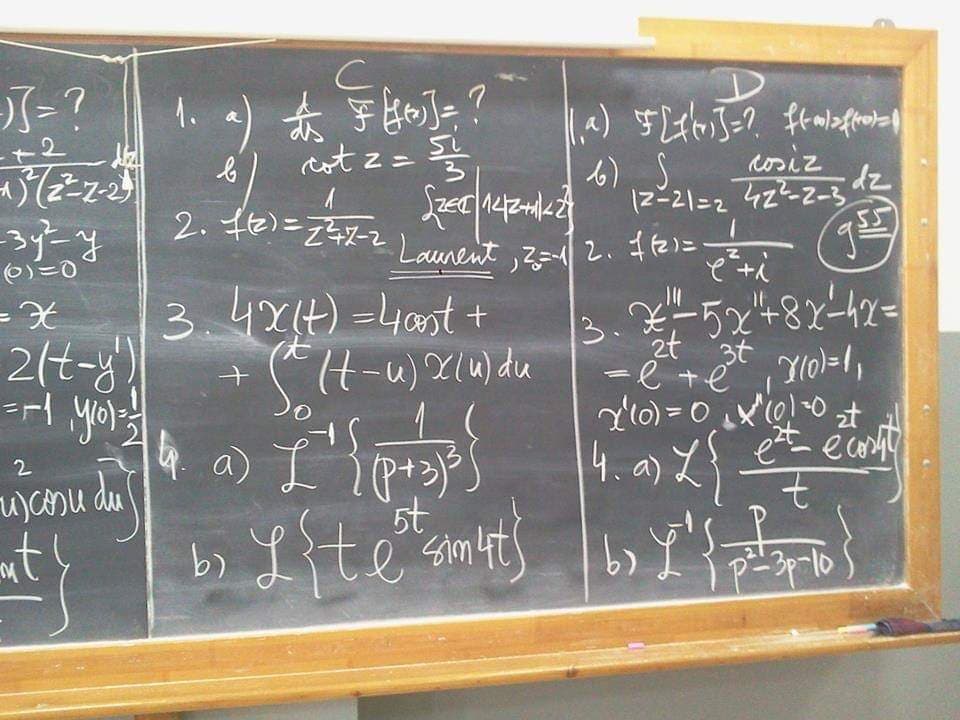 )]=?
+2
)²(z²-z-2) dz
3y²-y
(0)=0
= x
2(t-y')
=-1, y(0)=1/2
u)cosu du}
nt}
C
1. a) d/ds F[f(x)]=?
b) cot z = 5i/3
2. f(z)= 1/(z²+z-2) {z∈ℂ|1<|z+1|<2}
Laurent, z₀=-1
3. 4x(t) = 4cost +
+ ∫₀ᵗ (t-u) x(u) du
4. a) L⁻¹ {1/(p+3)³}
b) L{t e⁵ᵗ sin4t}
D
1. a) F[f'(x)]=? f(-∞)=f(+∞)=0
b) ∫|z-2|=2 cosiz/(4z²-z-3) dz
9⁵⁵
2. f(z)= 1/(e^z+i)
3. x'''-5x''+8x'-4x=
= e²ᵗ + e³ᵗ, x(0)=1,
x'(0)=0, x''(0)=0
4. a) L{(e²ᵗ - e²ᵗcos4t)/t}
b) L⁻¹{p/(p²-3p-10)}